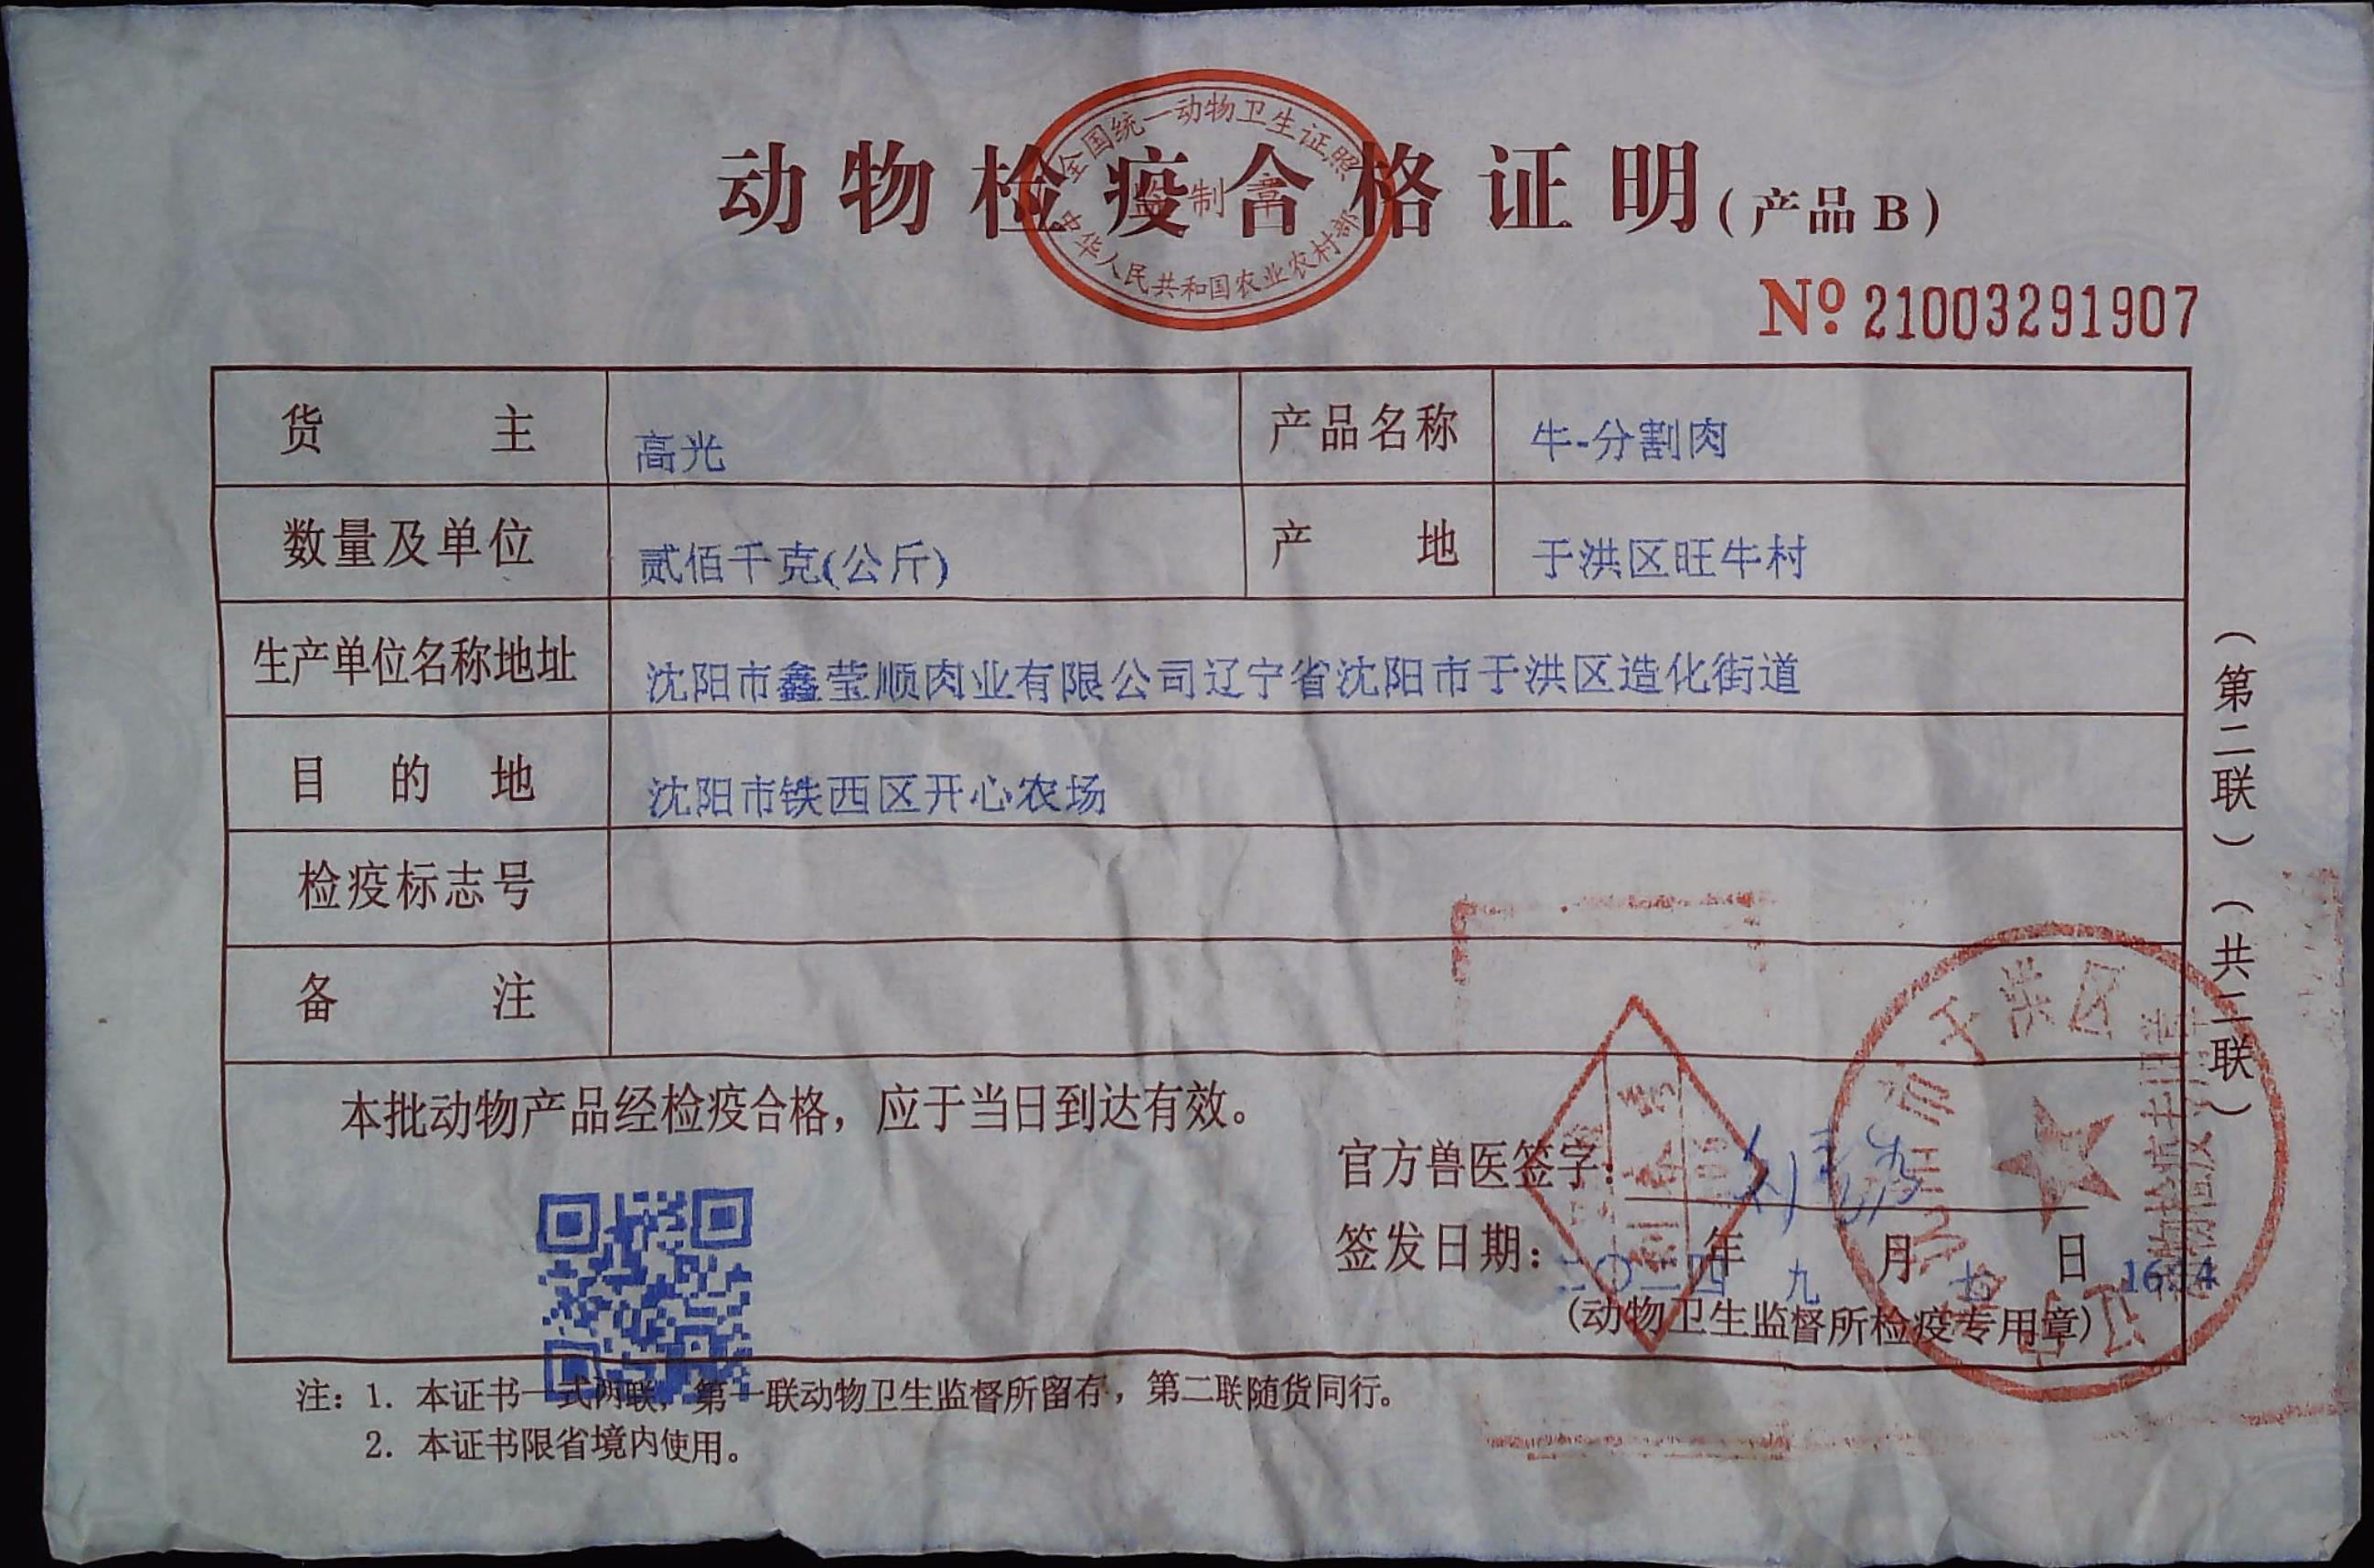 动物检疫合格证明(产品B)
全国统一动物卫生证照
监制章
中华人民共和国农业农村部
№ 21003291907
货主 高光 产品名称 牛-分割肉
数量及单位 贰佰千克(公斤) 产地 于洪区旺牛村
生产单位名称地址 沈阳市鑫莹顺肉业有限公司辽宁省沈阳市于洪区造化街道
目的地 沈阳市铁西区开心农场
检疫标志号
备注
本批动物产品经检疫合格，应于当日到达有效。
官方兽医签字：
签发日期：二〇二四年九月七日
(动物卫生监督所检疫专用章)
于洪区
(第二联)(共二联)
注：1. 本证书一式两联，第一联动物卫生监督所留存，第二联随货同行。
2. 本证书限省境内使用。